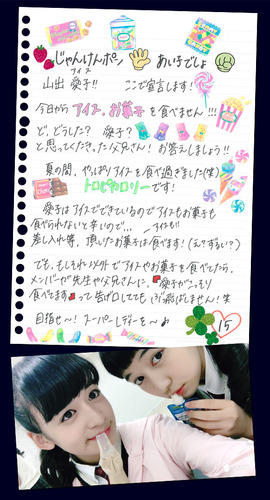 じゃんけんポン あい子でしょ
アイス
山出 愛子!! ここで宣言します!
今日から アイス、お菓子 を食べません!!!
ど、どうした? 愛子?
と思ってくださった父兄さん! お答えしましょう!!
夏の間、やっぱりアイスを食べ過ぎました(笑)
トロピカロリーです!
愛子はアイスでできているのでアイスもお菓子も
食べられないと辛いので... アイスも!!
差し入れ等、頂いたお菓子は食べます!
でも、もしそれ以外でアイスやお菓子を食べてたら、
メンバーが先生や父兄さんに、愛子がこっそり
食べてます って告げ口してても 笑
目指せ〜! スーパーレディーを〜♪
15